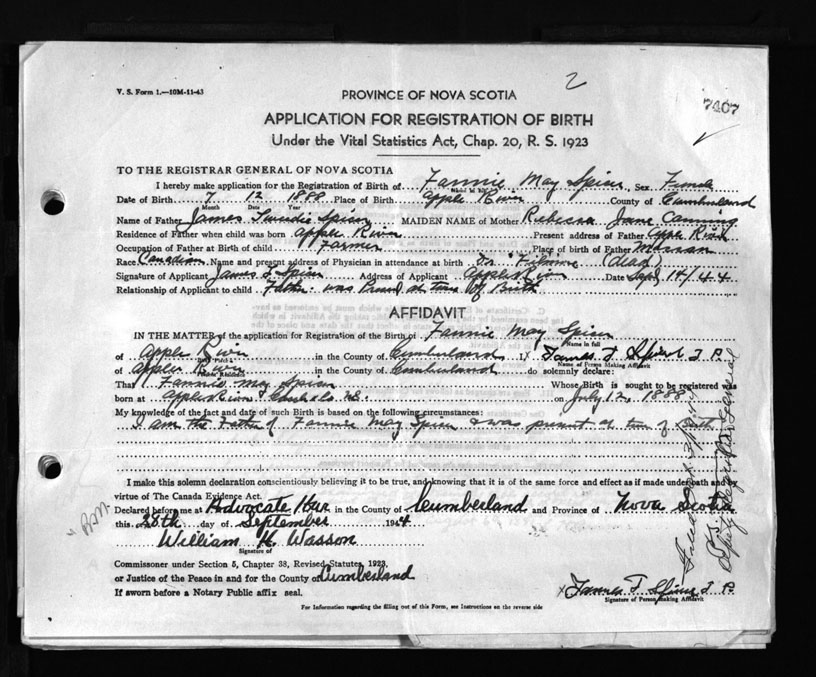 2
V. S. Form 1.—10M-11-43
PROVINCE OF NOVA SCOTIA
7407
APPLICATION FOR REGISTRATION OF BIRTH
Under the Vital Statistics Act, Chap. 20, R. S. 1923
TO THE REGISTRAR GENERAL OF NOVA SCOTIA
I hereby make application for the Registration of Birth of Fannie May Spicer, Sex Female
Date of Birth 7 12 1888 Place of Birth Apple River County of Cumberland
Month Date Year
Name of Father James Spicer MAIDEN NAME of Mother Rebecca Jane Canning
Residence of Father when child was born Apple River Present address of Father Apple River
Occupation of Father at Birth of child Farmer Place of birth of Father
Race Canadian Name and present address of Physician in attendance at birth Dr (dead)
Signature of Applicant James Spicer Address of Applicant Apple River Date Sept 14/44
Relationship of Applicant to child Father was Present at time of Birth
AFFIDAVIT
IN THE MATTER of the application for Registration of the Birth of Fannie May Spicer
Name in full
of Apple River in the County of Cumberland I, X James Spicer J. P.
Name of Person Making Affidavit
of Apple River in the County of Cumberland do solemnly declare:
That Fannie May Spicer Whose Birth is sought to be registered was
born at Apple River on July 12, 1888
My knowledge of the fact and date of such Birth is based on the following circumstances:
I am the Father of Fannie May Spicer & was present at time of Birth
I make this solemn declaration conscientiously believing it to be true, and knowing that it is of the same force and effect as if made under oath and by
virtue of The Canada Evidence Act.
Declared before me at Advocate Hbr in the County of Cumberland and Province of Nova Scotia
this 28th day of September 1944
William H. Wasson
Signature of
Commissioner under Section 5, Chapter 38, Revised Statutes, 1923,
or Justice of the Peace in and for the County of Cumberland
If sworn before a Notary Public affix seal.
X James Spicer J. P.
Signature of Person Making Affidavit
For Information regarding the filling out of this Form, see Instructions on the reverse side
Deputy Registrar General